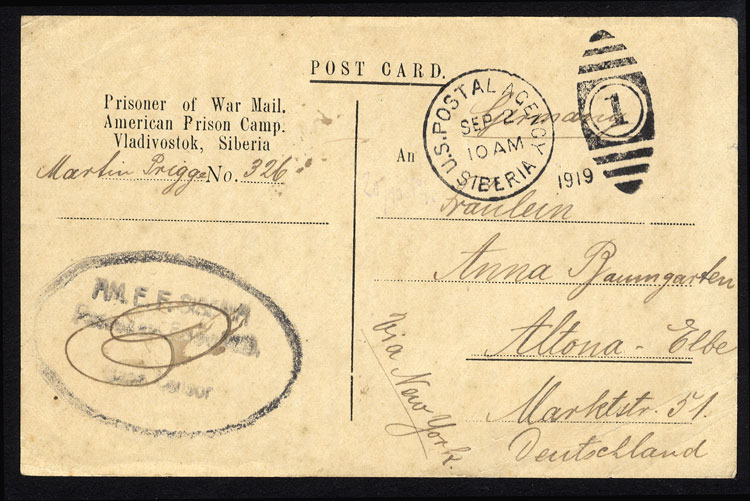 POST CARD.
Prisoner of War Mail.
American Prison Camp.
Vladivostok, Siberia
Martin Prigge No. 326
U.S. POSTAL AGENCY
SEP 2
10 AM
SIBERIA
1919
1
Germany
An
Fräulein
Anna Baumgarten
Altona-Elbe
Marktstr. 51.
Deutschland
Via New York.
AM. E. F. SIBERIA